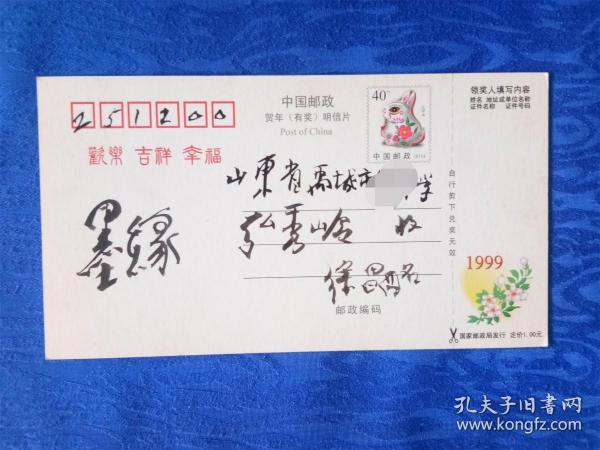 251200
中国邮政
贺年(有奖)明信片
Post of China
40分
中国邮政
欢乐 吉祥 幸福
山东省禹城市
学
弘秀岭 收
墨缘
徐昌酩
邮政编码
自行剪下兑奖无效
领奖人填写内容
姓名 地址或单位名称
证件名称 证件号码
1999
国家邮政局发行 定价1.00元
孔夫子旧书网
www.kongfz.com